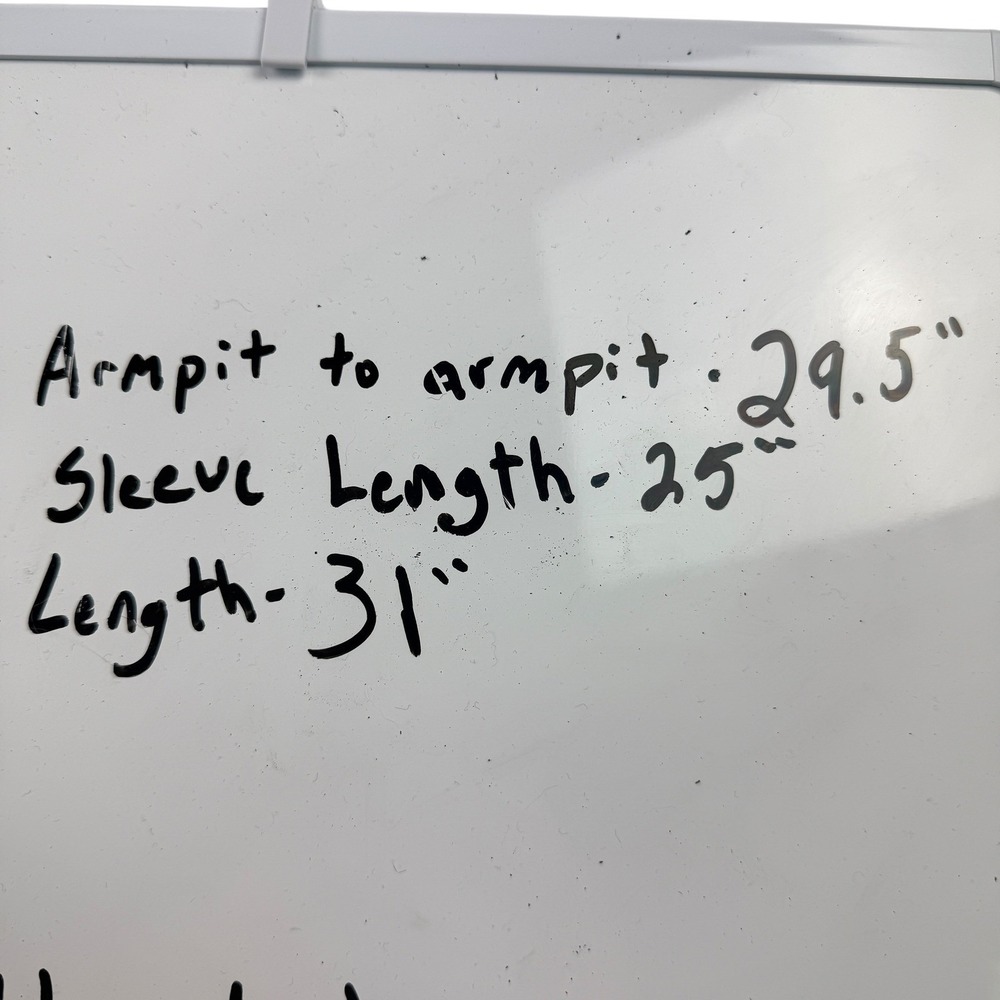 Armpit to armpit - 29.5"
Sleeve Length - 25"
Length - 31"